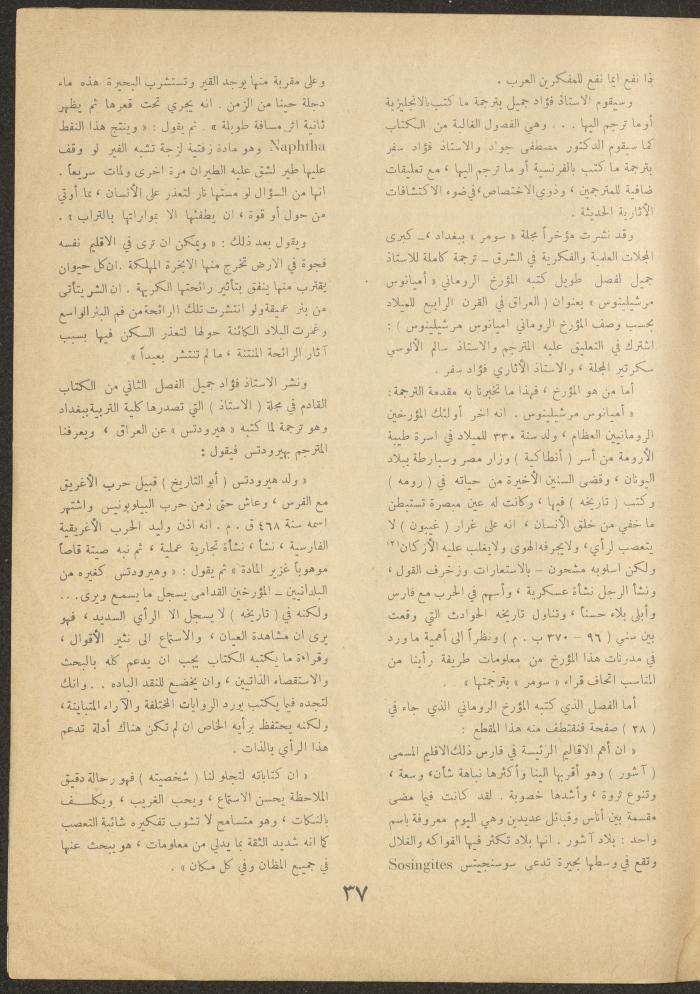 ذا نفع ايما نفع للمفكرين العرب .
وسيقوم الاستاذ فؤاد جميل بترجمة ما كتب بالانجليزية
أو ما ترجم اليها . . . وهي الفصول الغالبة من الكتاب
كما سيقوم الدكتور مصطفى جواد والاستاذ فؤاد سفر
بترجمة ما كتب بالفرنسية أو ما ترجم اليها ، مع تعليقات
ضافية للمترجمين ، وذوي الاختصاص ، في ضوء الاكتشافات
الأثارية الحديثة .
وقد نشرت مؤخراً مجلة « سومر » ببغداد ، – كبرى
المجلات العلمية والفكرية في الشرق – ترجمة كاملة للاستاذ
جميل لفصل طويل كتبه المؤرخ الروماني « أميانوس
مرشيلينوس » بعنوان ( العراق في القرن الرابع للميلاد
بحسب وصف المؤرخ الروماني اميانوس مرشيلينوس ) :
اشترك في التعليق عليه المترجم والاستاذ سالم الألوسي
سكرتير المجلة ، والاستاذ الأثاري فؤاد سفر .
أما من هو المؤرخ ، فهذا ما تخبرنا به مقدمة الترجمة :
« أميانوس مرشيلينوس . انه اخر أولئك المؤرخين
الرومانيين العظام ، ولد سنة ٣٣٠ للميلاد في اسرة طيبة
الأرومة من أسر ( أنطاكية ) وزار مصر وسبارطة ببلاد
اليونان ، وقضى السنين الأخيرة من حياته في ( رومه )
وكتب ( تاريخه ) فيها ، وكانت له عين مبصرة تستبطن
ما خفي من خلق الأنسان ، انه على غرار ( غيبون ) لا
يتعصب لرأي، ولا يجرفه الهوى ولا يغلب عليه الأركان(٢)
ولكن اسلوبه مشحون – بالاستعارات وزخرف القول ،
ونشأ الرجل نشأة عسكرية ، وأسهم في الحرب مع فارس
وأبلى بلاء حسناً ، وتناول تاريخه الحوادث التي وقعت
بين سني ( ٩٦ – ٣٧٠ ب . م ) ونظراً الى أهمية ما ورد
في مدونات هذا المؤرخ من معلومات طريفة رأينا من
المناسب اتحاف قراء « سومر » بترجمتها » .
أما الفصل الذي كتبه المؤرخ الروماني الذي جاء في
( ٢٨ ) صفحة فنقتطف منه هذا المقطع :
« ان أهم الاقاليم الرئيسة في فارس ذلك الاقليم المسمى
( آشور ) وهو أقربها الينا وأكثرها نباهة شأن، وسعة ،
وتنوع ثروة ، وأشدها خصوبة . لقد كانت فيما مضى
مقسمة بين أناس وقبائل عديدين وهي اليوم معروفة باسم
واحد : بلاد آشور . انها بلاد تكثر فيها الفواكه والغلال
وتقع في وسطها بحيرة تدعى سوسنجيتس Sosingites
وعلى مقربة منها يوجد القير وتستشرب البحيرة هذه ماء
دجلة حينا من الزمن . انه يجري تحت قعرها ثم يظهر
ثانية اثر مسافة طويلة » . ثم يقول : « وينتج هذا النفط
Naphtha وهو مادة زفتية لزجة تشبه القير لو وقف
عليها طير لشق عليه الطيران مرة اخرى ولمات سريعاً .
انها من السؤال لو مستها نار لتعذر على الأنسان ، بما أوتي
من حول أو قوة ، ان يطفئها الا بمواراتها بالتراب » .
ويقول بعد ذلك : « ويمكن ان ترى في الاقليم نفسه
فجوة في الارض تخرج منها الابخرة المهلكة . ان كل حيوان
يقترب منها ينفق بتأثير رائحتها الكريهة . ان الشر يتأتى
من بئر عميقة ولو انتشرت تلك الرائحة من فم البئر الواسع
وغمرت البلاد الكائنة حولها لتعذر السكن فيها بسبب
آثار الرائحة المنتنة ، ما لم تنتشر بعيداً »
ونشر الاستاذ فؤاد جميل الفصل الثاني من الكتاب
القادم في مجلة ( الاستاذ ) التي تصدرها كلية التربية ببغداد
وهو ترجمة لما كتبه « هيرودتس » عن العراق ، ويعرفنا
المترجم بهيرودتس فيقول :
« ولد هيرودتس ( أبو التاريخ ) قبيل حرب الأغريق
مع الفرس ، وعاش حتى زمن حرب البيلوبونيس واشتهر
اسمه سنة ٤٦٨ ق . م . انه اذن وليد الحرب الأغريقية
الفارسية ، نشأ ، نشأة تجارية عملية ، ثم نبه صيته قاصاً
موهوباً غزير المادة » ثم يقول : « وهيرودتس كغيره من
البلدانيين – المؤرخين القدامى يسجل ما يسمع ويرى...
ولكنه في ( تاريخه ) لا يسجل الا الرأي السديد ، فهو
يرى ان مشاهدة العيان ، والاستماع الى نثير الأقوال ،
وقراءة ما يكتبه الكتاب يجب ان يدعم كله بالبحث
والاستقصاء الذاتيين ، وان يخضع للنقد الباده . . وانك
لتجده فيما يكتب يورد الروايات المختلفة والآراء المتباينة ،
ولكنه يحتفظ برأيه الخاص ان لم تكن هناك أدلة تدعم
هذا الرأي بالذات .
« ان كتاباته لتجلو لنا ( شخصيته ) فهو رحالة دقيق
الملاحظة يحسن الاستماع ، ويحب الغريب ، ويكلف
بالنكات ، وهو متسامح لا تشوب تفكيره شائبة التعصب
كما انه شديد الثقة بما يدلي من معلومات ، هو يبحث عنها
في جميع المظان وفي كل مكان » .
٣٧